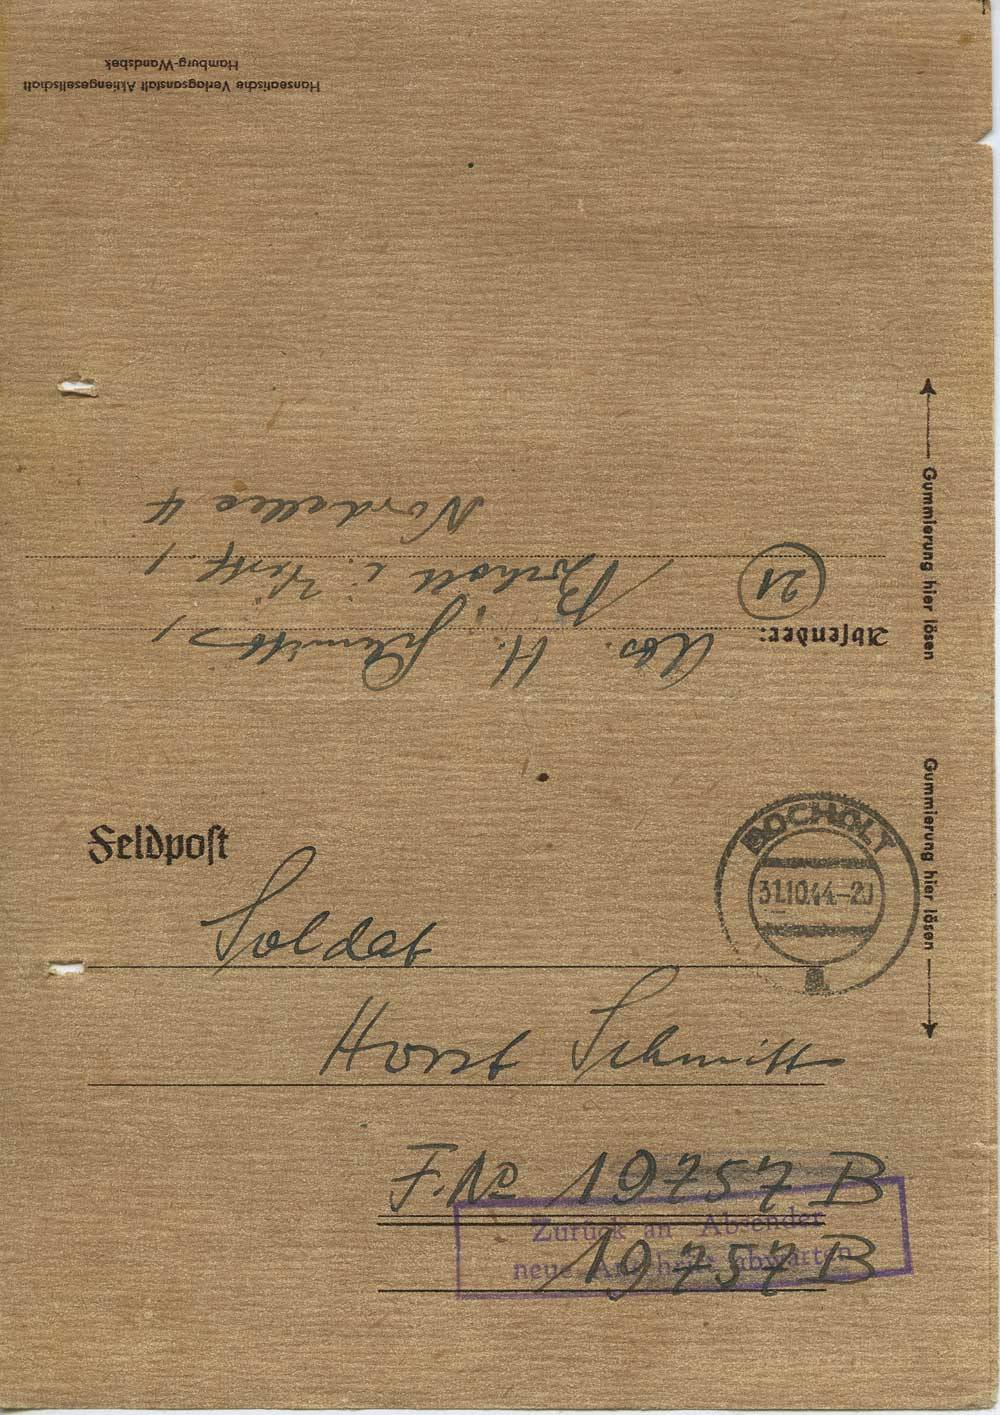 Hanseatische Verlagsanstalt Aktiengesellschaft
Hamburg-Wandsbek
Gummierung hier lösen
Absender: Abs. H. Schmitt,
21 Bocholt i. Westf.,
Nordallee 4
Gummierung hier lösen
Feldpost
BOCHOLT
31.10.44.-20
a
Soldat
Horst Schmitt
F. No 19757 B
Zurück an Absender
neue Anschrift abwarten
19757 B